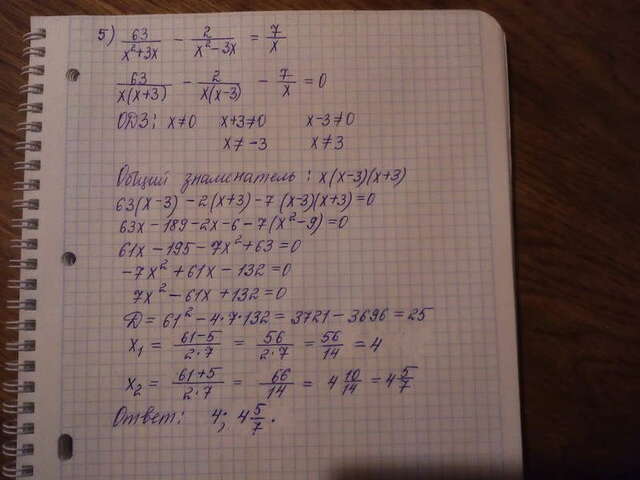 5) 63/(x²+3x) − 2/(x²−3x) = 7/x
63/(x(x+3)) − 2/(x(x−3)) − 7/x = 0
ОДЗ: x≠0 x+3≠0 x−3≠0
x≠−3 x≠3
Общий знаменатель: x(x−3)(x+3)
63(x−3) −2(x+3)−7(x−3)(x+3)=0
63x−189−2x−6−7(x²−9)=0
61x−195−7x²+63=0
−7x²+61x−132=0
7x²−61x+132=0
D=61²−4·7·132=3721−3696=25
x₁ = (61−5)/(2·7) = 56/(2·7) = 56/14 = 4
x₂ = (61+5)/(2·7) = 66/14 = 4 10/14 = 4 5/7
Ответ: 4; 4 5/7.